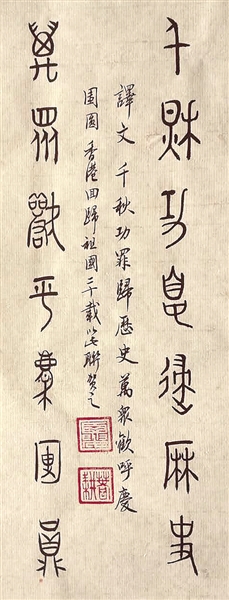 千秋功罪歸歷史
萬眾歡呼慶團圓
譯文 千秋功罪歸歷史萬眾歡呼慶
團圓 香港回歸祖國二十載此聯賀之